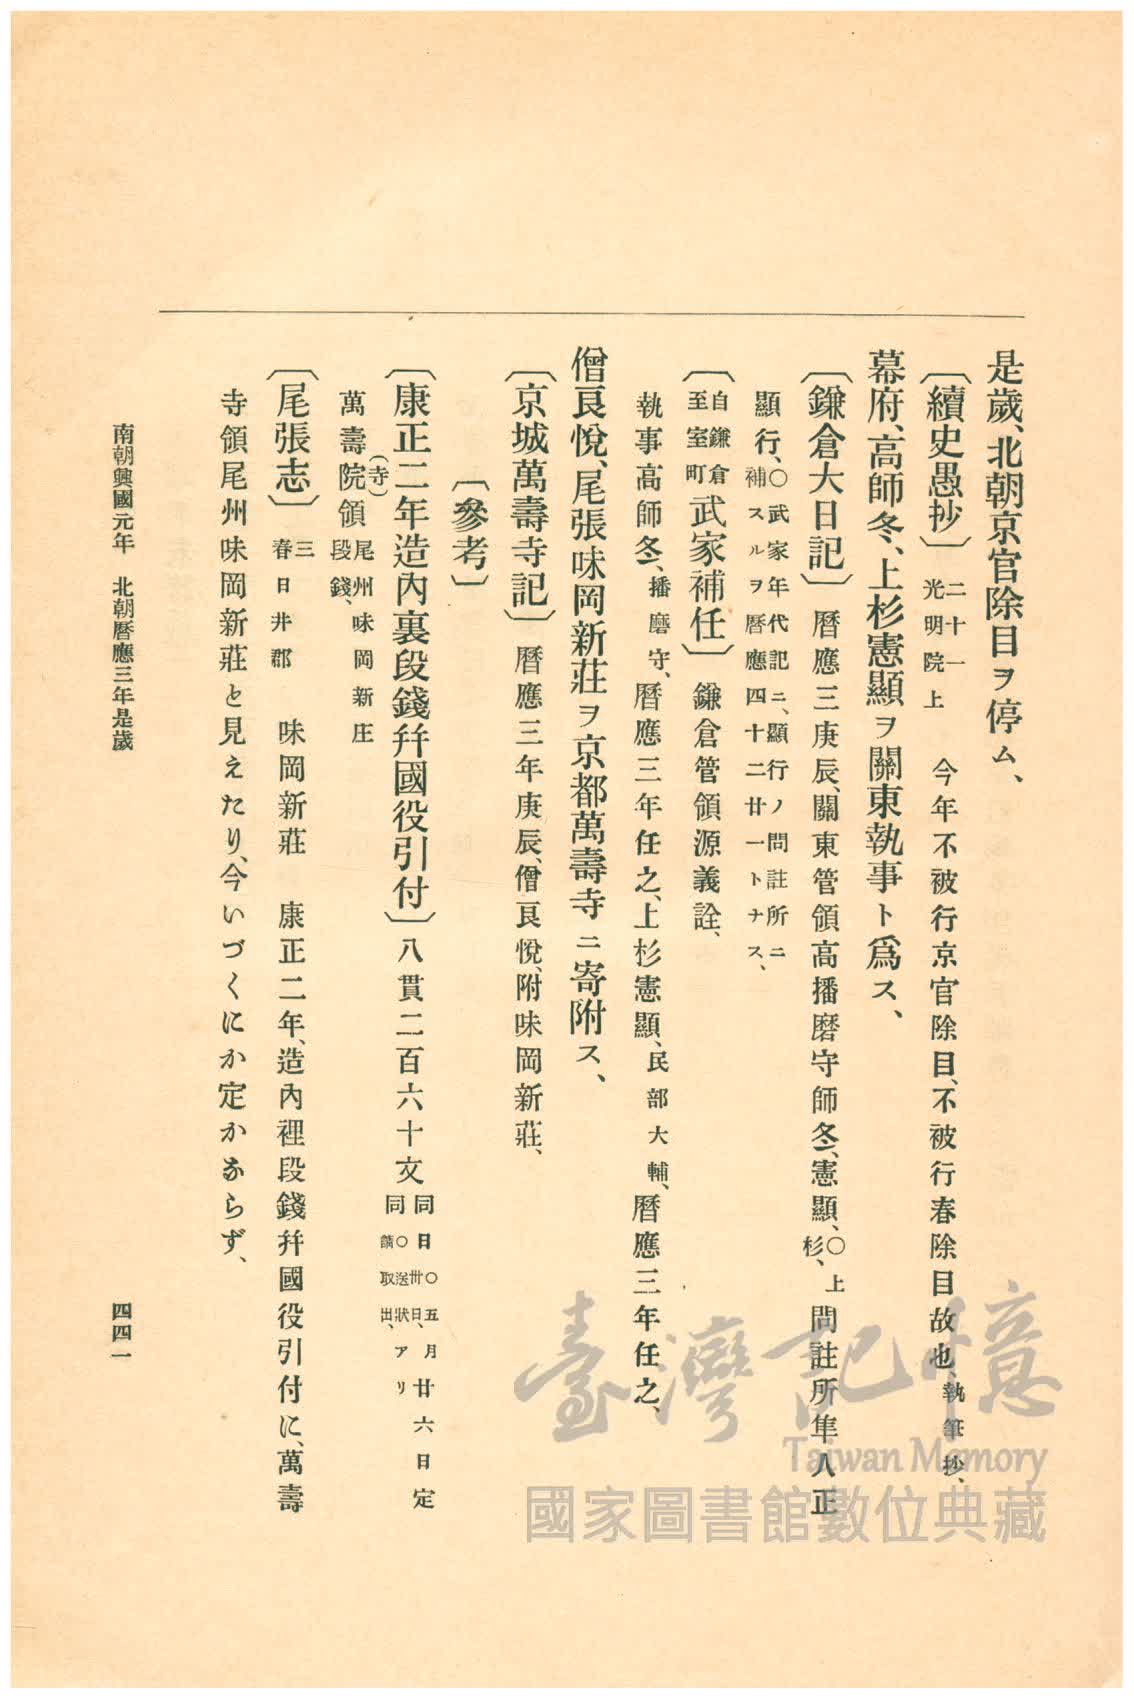 是歲、北朝京官除目ヲ停ム、
〔續史愚抄〕二十一光明院上　今年不被行京官除目、不被行春除目故也、執筆抄、
幕府、高師冬、上杉憲顯ヲ關東執事ト爲ス、
〔鎌倉大日記〕曆應三庚辰、關東管領高播磨守師冬、憲顯、〇上杉、問註所隼人正
顯行、〇武家年代記ニ、顯行ノ問註所ニ補スルヲ曆應四十二廿一トナス、
〔自鎌倉至室町武家補任〕鎌倉管領源義詮、
執事高師冬、播磨守、曆應三年任之、上杉憲顯、民部大輔、曆應三年任之、
僧良悅、尾張味岡新莊ヲ京都萬壽寺ニ寄附ス、
〔京城萬壽寺記〕曆應三年庚辰、僧良悅、附味岡新莊、
〔參考〕
〔康正二年造內裏段錢幷國役引付〕八貫二百六十文同日〇五月廿六日定〇卅日、送狀アリ同請取出、
萬壽院(寺)領尾州味岡新庄段錢、
〔尾張志〕三春日井郡　味岡新莊　康正二年、造內裡段錢幷國役引付に、萬壽
寺領尾州味岡新莊と見えたり、今いづくにか定かならず、
南朝興國元年　北朝曆應三年是歲
四四一
臺灣記憶
Taiwan Memory
國家圖書館數位典藏